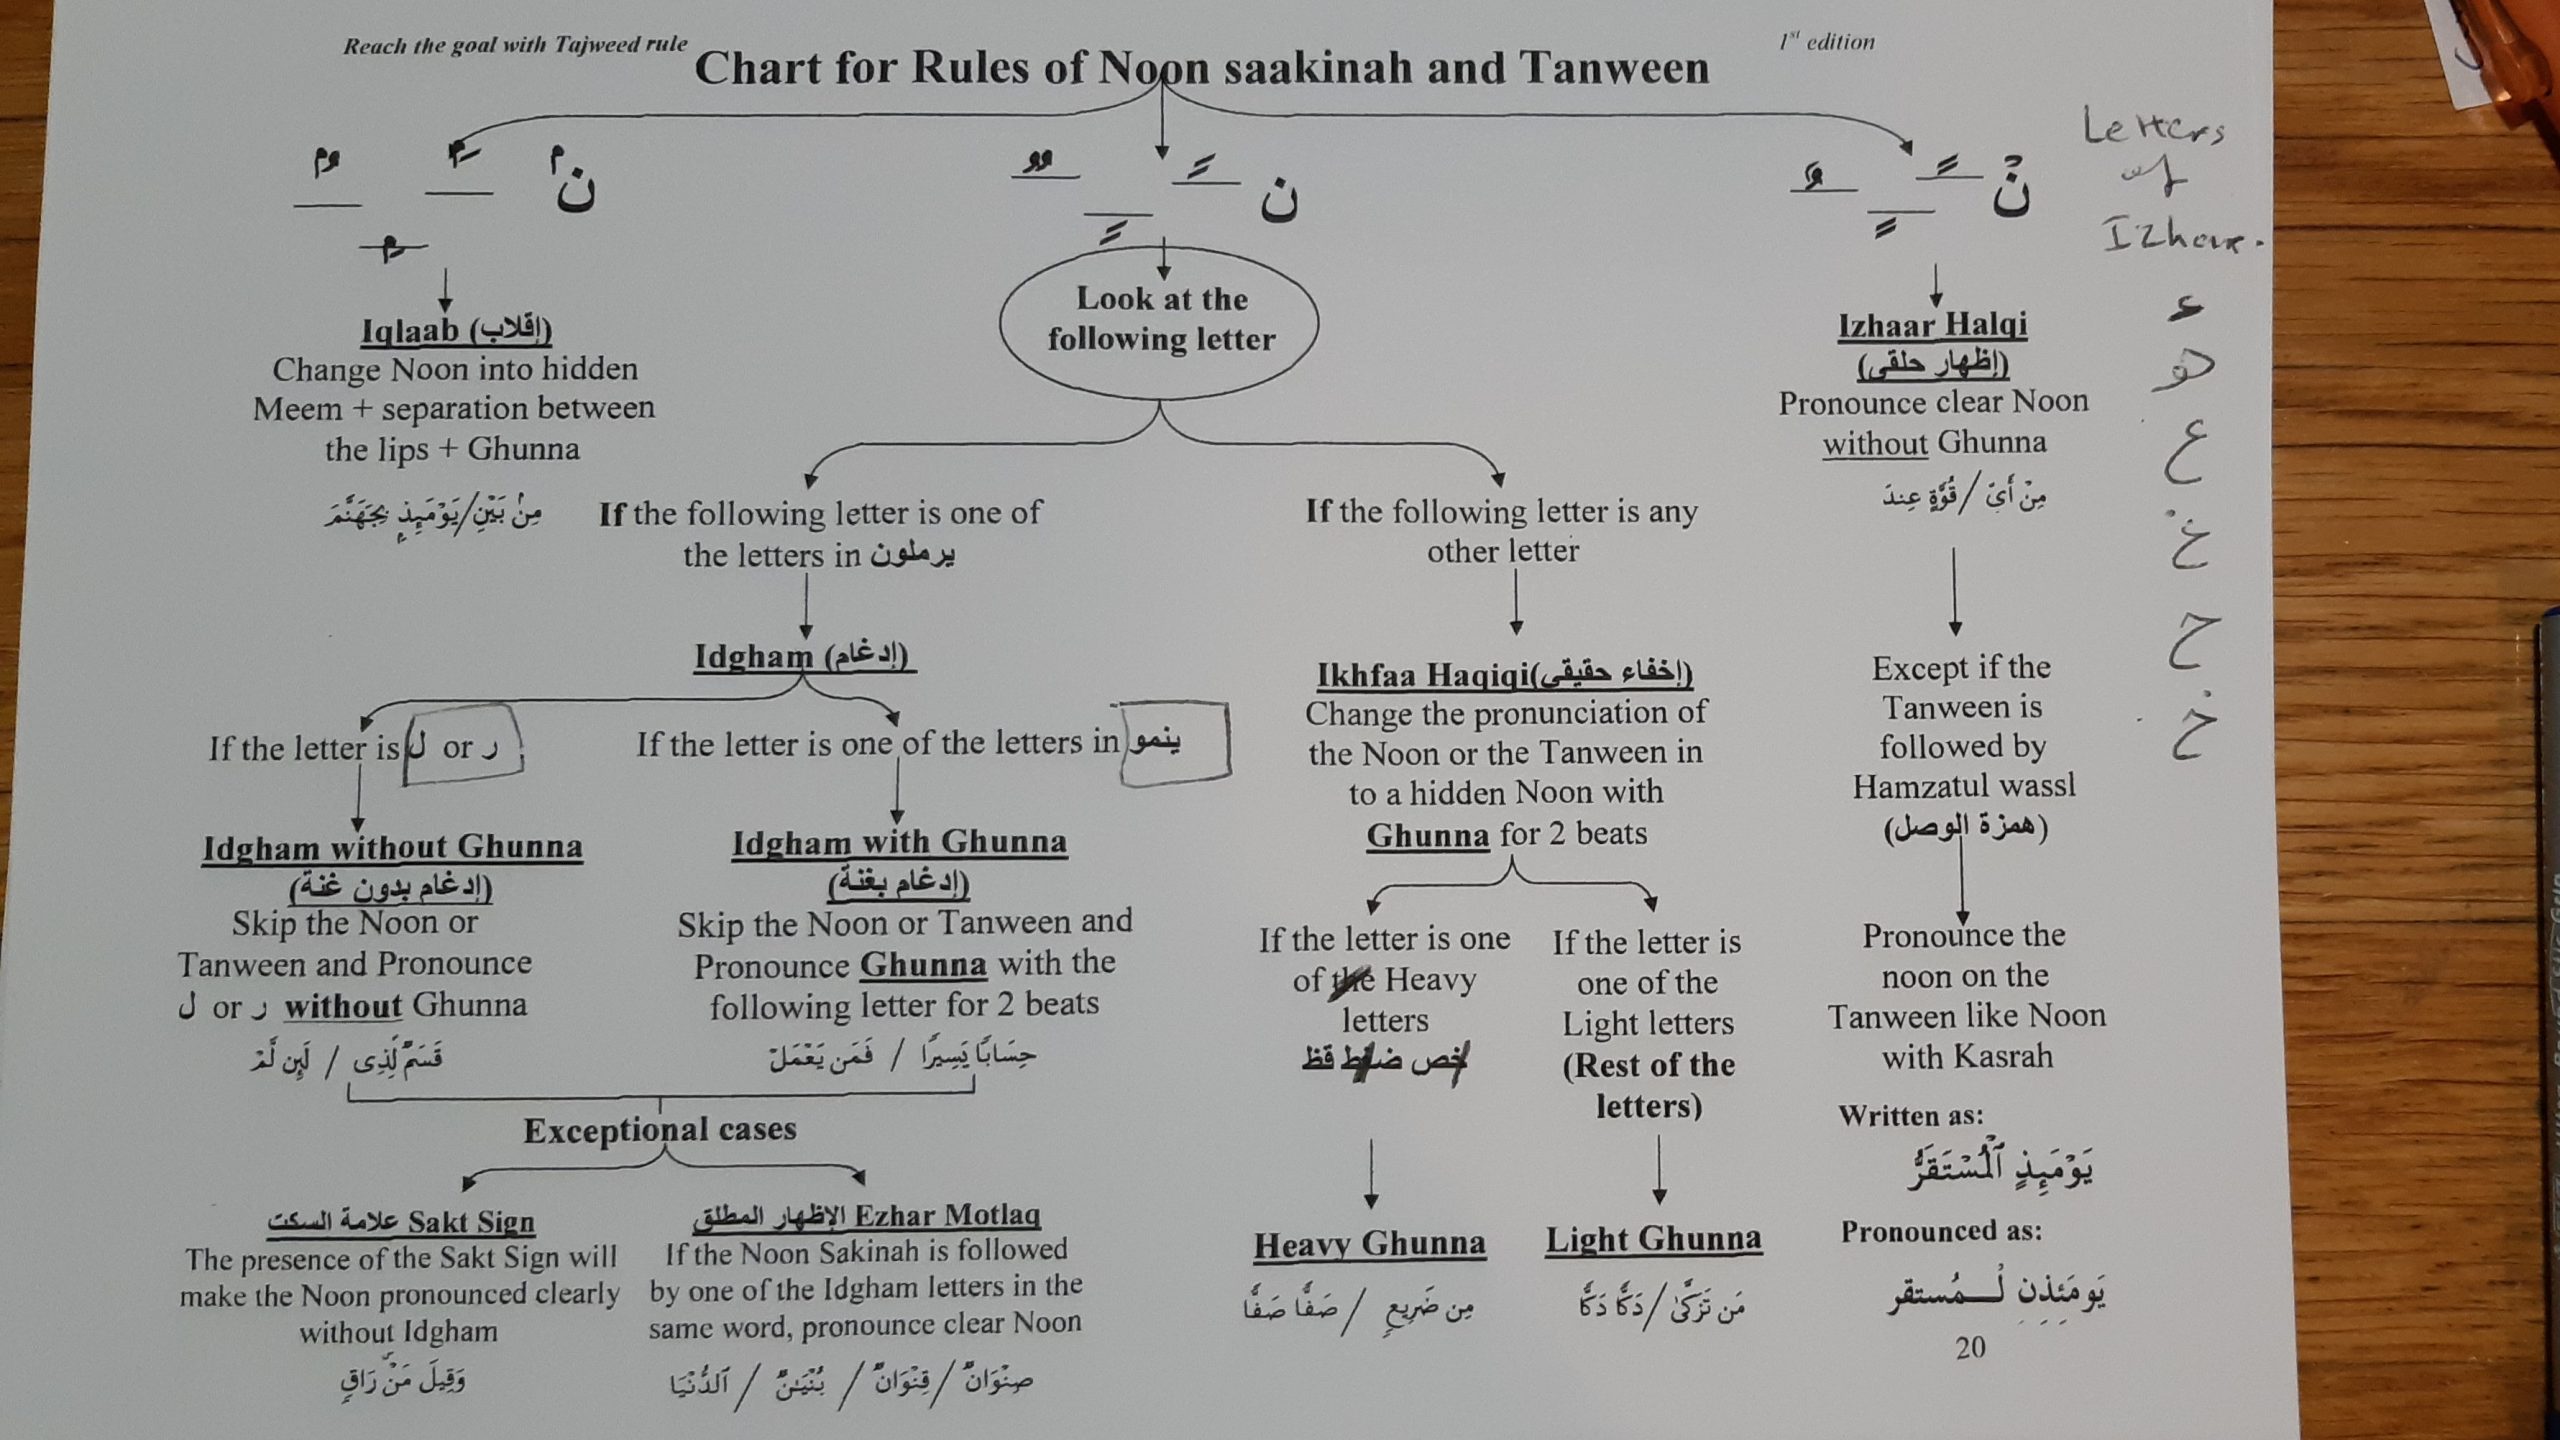 Reach the goal with Tajweed rule
1st edition
Chart for Rules of Noon saakinah and Tanween
Letters
of
Izhar.
ء
ع
ح
خ
نۢ
ن
نۡ
Iqlaab (إقلاب)
Change Noon into hidden
Meem + separation between
the lips + Ghunna
مِنۢ بَيۡنِ/يَوۡمَئِذِۭ بِجَهَنَّمَ
Look at the
following letter
If the following letter is one of
the letters in يرملون
Idgham (إدغام)
If the letter is ل or ر
Idgham without Ghunna
(إدغام بدون غنة)
Skip the Noon or
Tanween and Pronounce
ل or ر without Ghunna
قَسَمٞ لِّذِى / لَئِن لَّمۡ
If the letter is one of the letters in ينمو
Idgham with Ghunna
(إدغام بغنة)
Skip the Noon or Tanween and
Pronounce Ghunna with the
following letter for 2 beats
حِسَابٗا يَسِيرٗا / فَمَن يَعۡمَلۡ
Exceptional cases
علامة السكت Sakt Sign
The presence of the Sakt Sign will
make the Noon pronounced clearly
without Idgham
وَقِيلَ مَنۡۜ رَاقٖ
الإظهار المطلق Ezhar Motlaq
If the Noon Sakinah is followed
by one of the Idgham letters in the
same word, pronounce clear Noon
صِنۡوَانٞ / قِنۡوَانٞ / بُنۡيَٰنٞ / ٱلدُّنۡيَا
If the following letter is any
other letter
Ikhfaa Haqiqi(إخفاء حقيقى)
Change the pronunciation of
the Noon or the Tanween in
to a hidden Noon with
Ghunna for 2 beats
If the letter is one
of the Heavy
letters
خص ضغط قظ
Heavy Ghunna
مِن ضَرِيعٖ / صَفّٗا صَفّٗا
If the letter is
one of the
Light letters
(Rest of the
letters)
Light Ghunna
مَن تَزَكَّىٰ / دَكّٗا دَكّٗا
Izhaar Halqi
(إظهار حلقى)
Pronounce clear Noon
without Ghunna
مِنۡ أَيِّ / قُوَّةٍ عِندَ
Except if the
Tanween is
followed by
Hamzatul wassl
(همزة الوصل)
Pronounce the
noon on the
Tanween like Noon
with Kasrah
Written as:
يَوۡمَئِذٍ ٱلۡمُسۡتَقَرُّ
Pronounced as:
يَومَئِذِنِ لْـــمُستقر
20